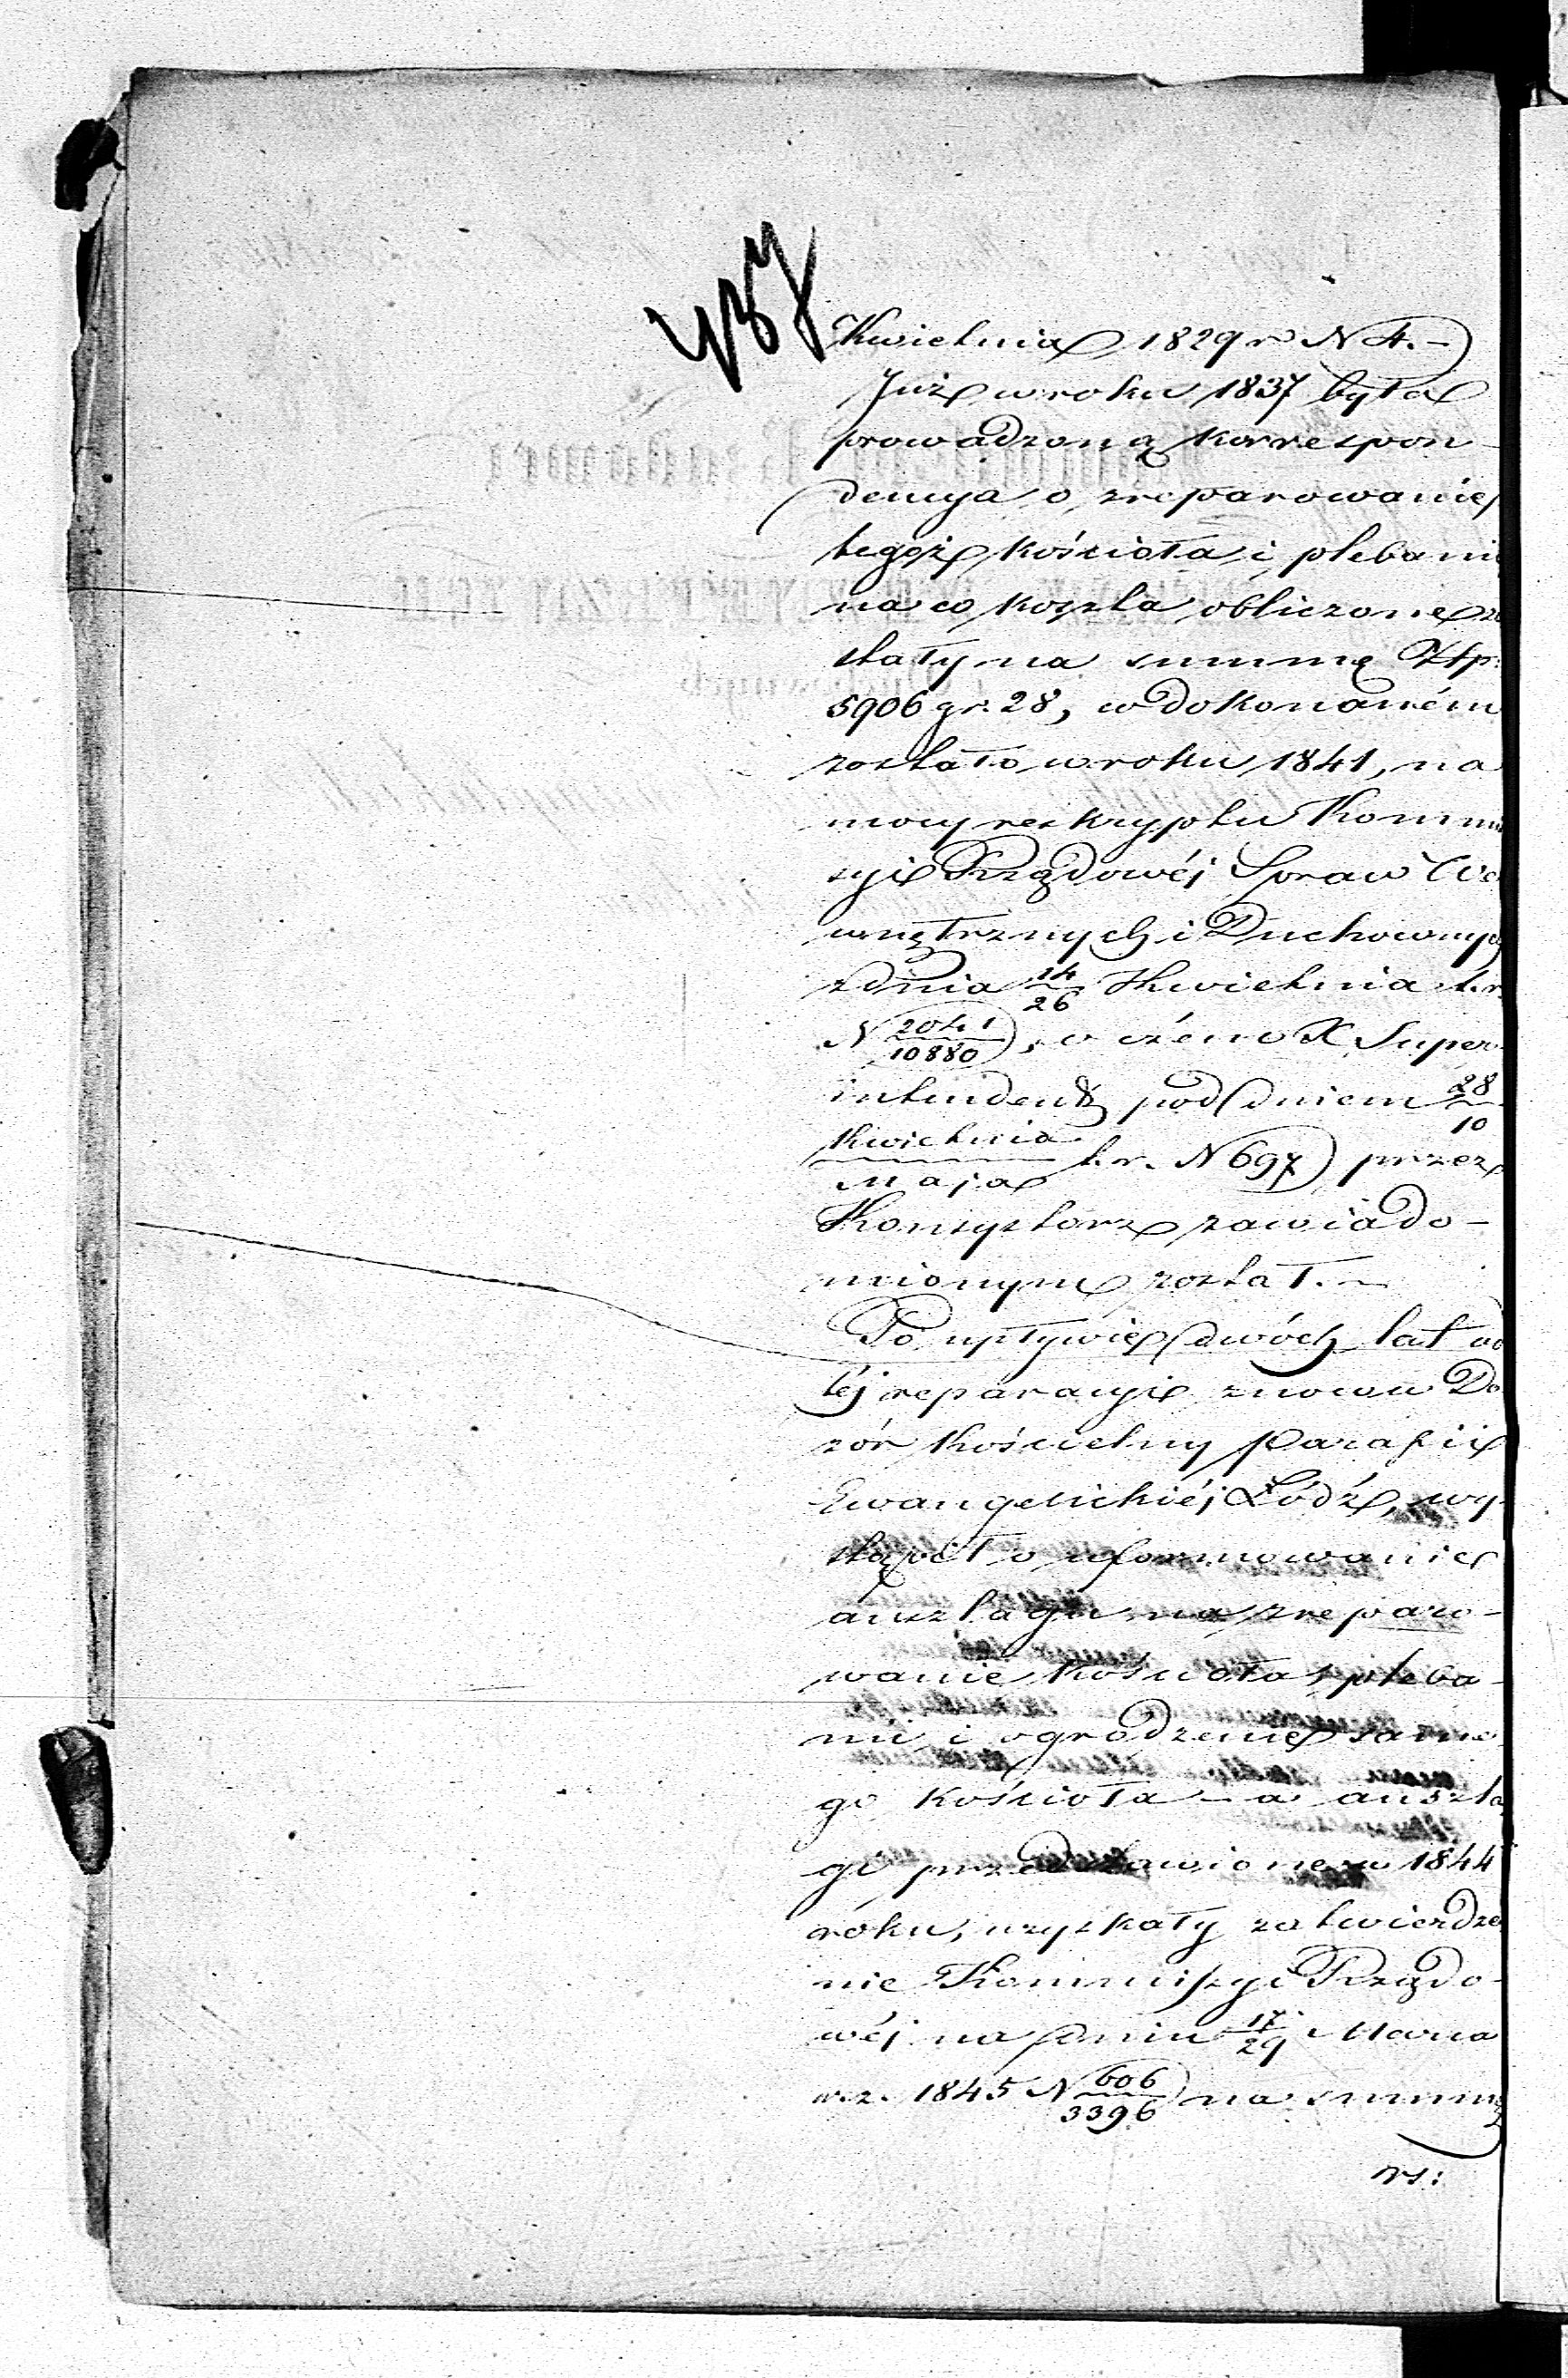 457
Kwietnia 1829 r N 4. –
Już w roku 1837 była
prowadzoną korrespon-
dencya o zreparowanie
tegoż kościoła i plebanii
na co koszta obliczone zo
stały na summę Złp:
5906 gr. 28, w dokonaném
zostało w roku 1841, na
mocy reskryptu Kommis
syi Rządowéj Spraw We
wnętrznych i Duchownych
z dnia 14/26 Kwietnia t. r.
N 2041/10880, o czém X Super
intendent pod dniem 28/10
Kwietnia/Maja t. r. N 697 przez
Konsystorz zawiado-
mionym został. –
Po upływie dwóch lat od
téj reparacyi znowu Do
zór kościelny Parafii
Ewangelickiéj Łódź, wy-
stąpił o uformowanie
anszlagu na zreparo-
wanie kościoła, pleba-
nii i ogrodzenie same
go kościoła – a anszla
gi przedstawione w 1844
roku, uzyskały zatwierdze
nie Kommissyi Rządo-
wéj na dniu 17/29 Marca
r. z. 1845 N 606/3396 na summę
rs: